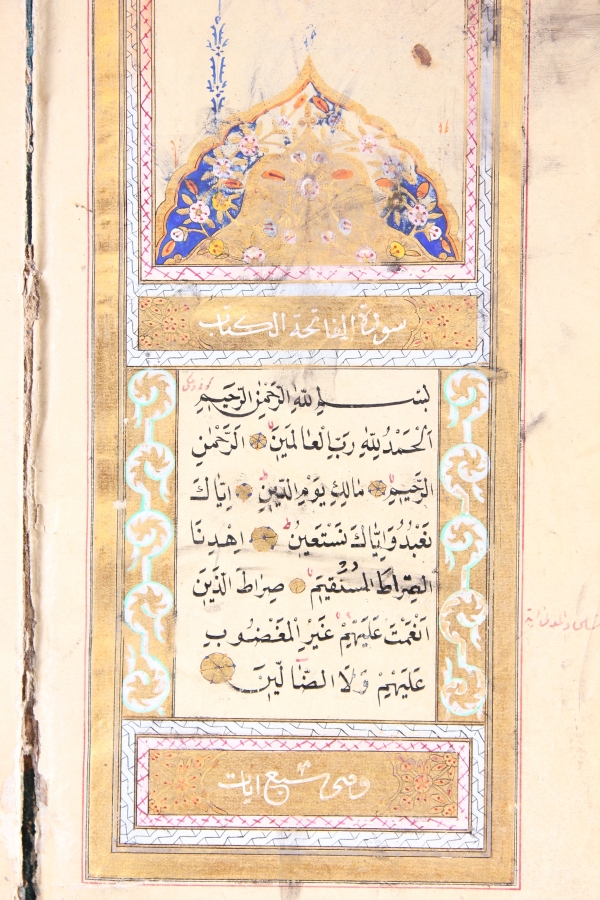 سورة الفاتحة الكتاب
بِسْمِ اللّٰهِ الرَّحْمٰنِ الرَّحِيمِ
اَلْحَمْدُ لِلّٰهِ رَبِّ الْعَالَمِينَ الرَّحْمٰنِ
الرَّحِيمِ مَالِكِ يَوْمِ الدِّينِ اِيَّاكَ
نَعْبُدُ وَاِيَّاكَ نَسْتَعِينُ اِهْدِنَا
الصِّرَاطَ الْمُسْتَقِيمَ صِرَاطَ الَّذِينَ
اَنْعَمْتَ عَلَيْهِمْ غَيْرِ الْمَغْضُوبِ
عَلَيْهِمْ وَلَا الضَّالِّينَ
وهى سبع ايات